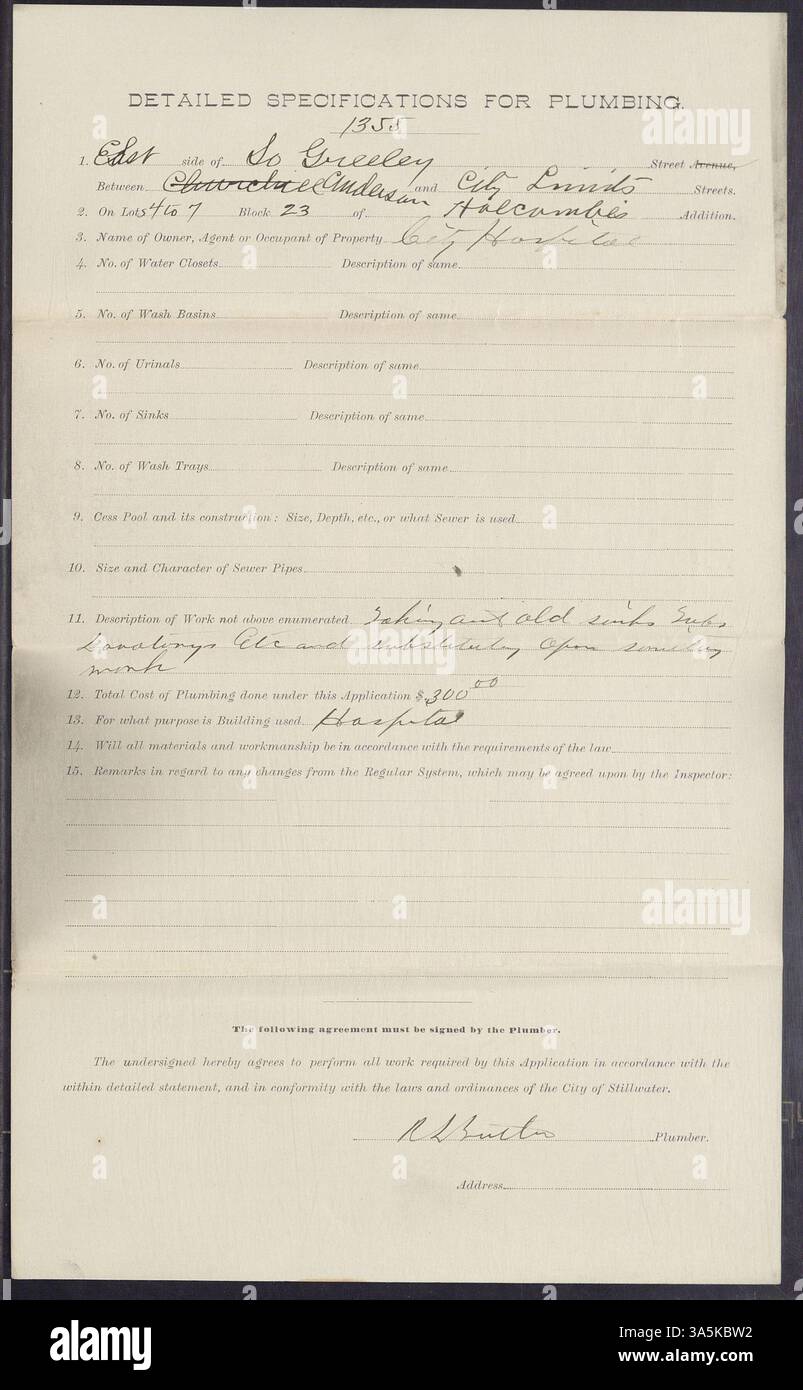 DETAILED SPECIFICATIONS FOR PLUMBING.
1355
1. East side of So Greeley Street Avenue,
Between Churchill Anderson and City Limits Streets.
2. On Lots 4 to 7 Block 23 of Holcombes Addition.
3. Name of Owner, Agent or Occupant of Property City Hospital
4. No. of Water Closets Description of same
5. No. of Wash Basins Description of same
6. No. of Urinals Description of same
7. No. of Sinks Description of same
8. No. of Wash Trays Description of same
9. Cess Pool and its construction: Size, Depth, etc., or what Sewer is used
10. Size and Character of Sewer Pipes
11. Description of Work not above enumerated Taking out old sinks Tubs
Lavatorys Etc and substituting Open
work
12. Total Cost of Plumbing done under this Application $300 00
13. For what purpose is Building used Hospital
14. Will all materials and workmanship be in accordance with the requirements of the law
15. Remarks in regard to any changes from the Regular System, which may be agreed upon by the Inspector:
The following agreement must be signed by the Plumber.
The undersigned hereby agrees to perform all work required by this Application in accordance with the
within detailed statement, and in conformity with the laws and ordinances of the City of Stillwater.
R L Butler Plumber.
Address
alamy
Image ID: 3A5KBW2
www.alamy.com